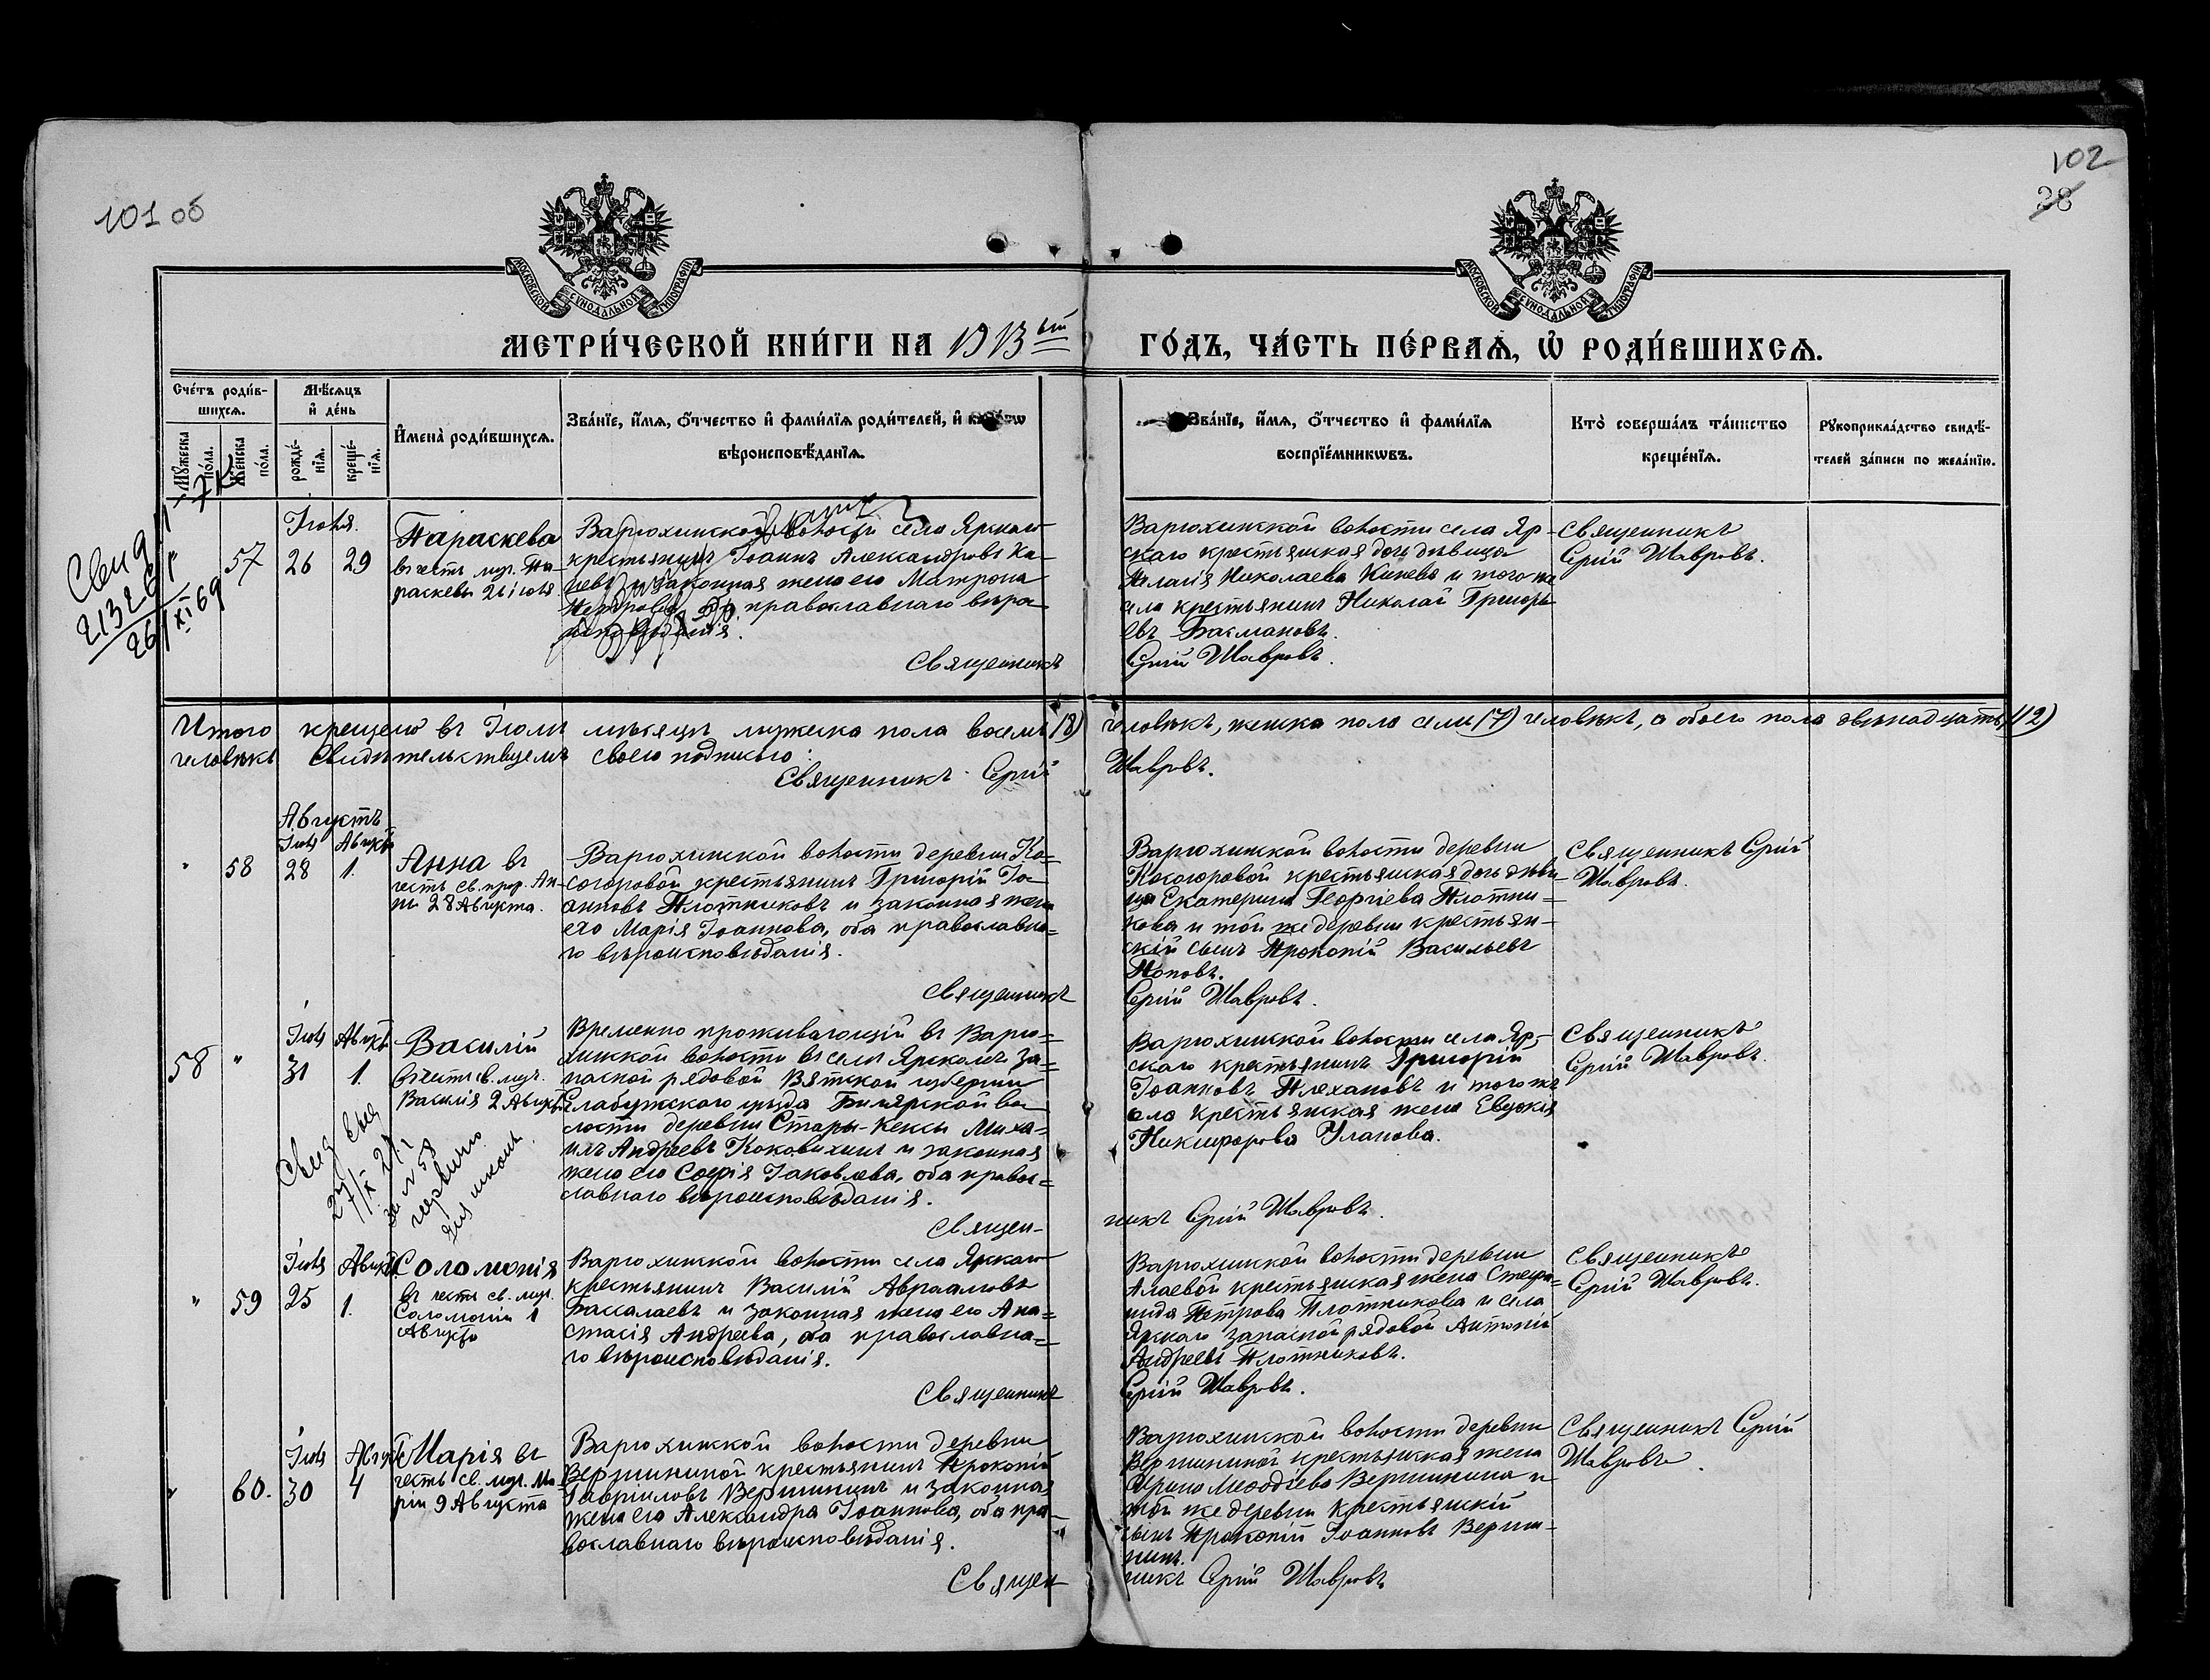 101 об
102
28
МОСКОВСКОЙ СѴНОДАЛЬНОЙ ТИПОГРАФІИ
МОСКОВСКОЙ СѴНОДАЛЬНОЙ ТИПОГРАФІИ
МЕТРИ́ЧЕСКОЙ КНИ́ГИ НА 1913ый ГО́ДЪ, ЧА́СТЬ ПЕ́РВАѦ, Ѡ҆ РОДИ́ВШИХСѦ.
Сче́тъ роди́в-
шихсѧ.
Мꙋжеска
по́ла.
Же́нска
по́ла.
Мѣ́сѧцъ
и҆ де́нь
рожде́-
нїѧ.
креще́-
нїѧ.
И҆мена̀ роди́вшихсѧ.
Зва́нїе, и҆́мѧ, ѻ҆́тчество и҆ фами́лїѧ роди́телей, и҆
вѣроисповѣ́данїѧ.
Зва́нїе, и҆́мѧ, ѻ҆́тчество и҆ фами́лїѧ
воспрїе́мникѡвъ.
Кто̀ соверша́лъ та́инство
креще́нїѧ.
Рꙋкоприкла́дство свидѣ́-
телей за́писи по жела́нїю.
Свид
21326
26/XI 69
57
Іюля.
26 29
Параскева
въ честь муч. Па-
раскевы 26 іюля
Варюхинской волости села Ярскаго
крестьянинъ Іоаннъ Александровъ Ки-
невъ и законная жена его Матрона
Петрова, оба православнаго вѣро-
исповѣданія.
Священникъ
Варюхинской волости села Яр-
скаго крестьянская дочь дѣвица
Пелагія Николаева Кинева и того же
села крестьянинъ Николай Григорь-
евъ Басмановъ.
Сергій Шавровъ.
Священникъ
Сергій Шавровъ.
Итого крещено въ Іюлѣ мѣсяцѣ мужеска пола восемь (8) человѣкъ, женска пола семь (7) человѣкъ, а обоего пола двѣнадцать (12)
человѣкъ Свидѣтельствуемъ своею подписью:
Священникъ Сергій Шавровъ.
Августъ
Іюля Августа
" 58 28 1.
Анна въ
честь св. прор. Ан-
ны 28 Августа.
Варюхинской волости деревни Ко-
согоровой крестьянинъ Григорій Іо-
анновъ Плотниковъ и законная жена
его Марія Іоаннова, оба православна-
го вѣроисповѣданія.
Священникъ
Варюхинской волости деревни
Косогоровой крестьянская дочь дѣви-
ца Екатерина Георгіева Плотни-
кова и той же деревни крестьян-
скій сынъ Прокопій Васильевъ
Поповъ.
Сергій Шавровъ.
Священникъ Сергій
Шавровъ.
Іюля Августа
58 " 31 1.
Василій
въ честь св. муч.
Василія 2 Августа
Временно проживающій въ Варю-
хинской волости въ селѣ Ярскомъ за-
пасной рядовой Вятской губерніи
Елабужскаго уѣзда Билярской во-
лости деревни Стары-Кексы Миха-
илъ Андреевъ Коковихинъ и законная
жена его Софія Іаковлева, оба правос-
славнаго вѣроисповѣданія.
Священ-
Варюхинской волости села Яр-
скаго крестьянинъ Григорій
Іоанновъ Плехановъ и того же
села крестьянская жена Евдокія
Никифорова Уланова.
никъ Сергій Шавровъ.
Священникъ
Сергій Шавровъ.
Іюля Августа
" 59 25 1.
Соломонія
въ честь св. муч.
Соломоніи 1
Августа
Варюхинской волости села Ярскаго
крестьянинъ Василій Авраамовъ
Баскалаевъ и законная жена его Ана-
стасія Андреева, оба православна-
го вѣроисповѣданія.
Священникъ
Варюхинской волости деревни
Алаевой крестьянская жена Стефа-
нида Петрова Плотникова и села
Ярскаго запасной рядовой Антоній
Андреевъ Плотниковъ.
Сергій Шавровъ.
Священникъ
Сергій Шавровъ.
Іюля Августа
" 60. 30 4
Марія въ
честь св. муч. Ма-
ріи 9 Августа
Варюхинской волости деревни
Вершининой крестьянинъ Прокопій
Гавріиловъ Вершининъ и законная
жена его Александра Іоаннова, оба пра-
вославнаго вѣроисповѣданія.
Священ-
Варюхинской волости деревни
Вершининой крестьянская жена
Ирина Меѳодіева Вершинина и
той же деревни крестьянскій
сынъ Прокопій Іоанновъ Верши-
нинъ.
никъ Сергій Шавровъ
Священникъ Сергій
Шавровъ.